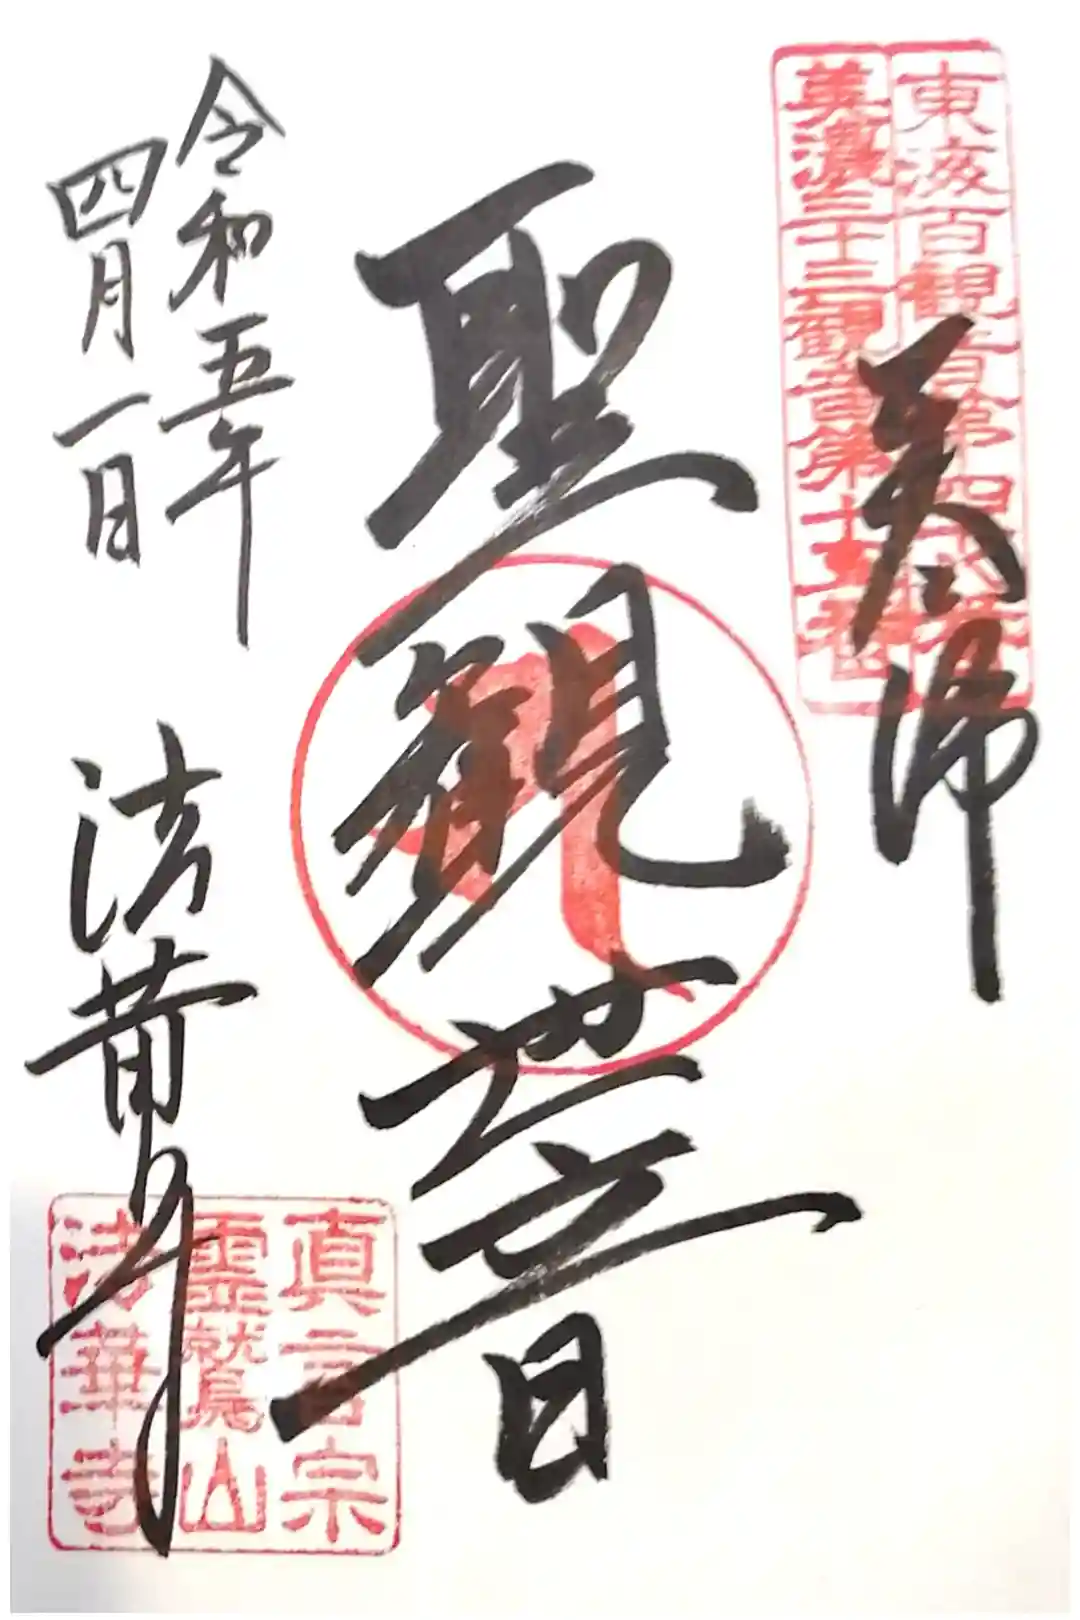 東海百観音第四十八番
美濃三十三観音第十五番
奉拝
聖観世音
令和五年
四月一日
法華寺
真言宗
霊鷲山
法華寺